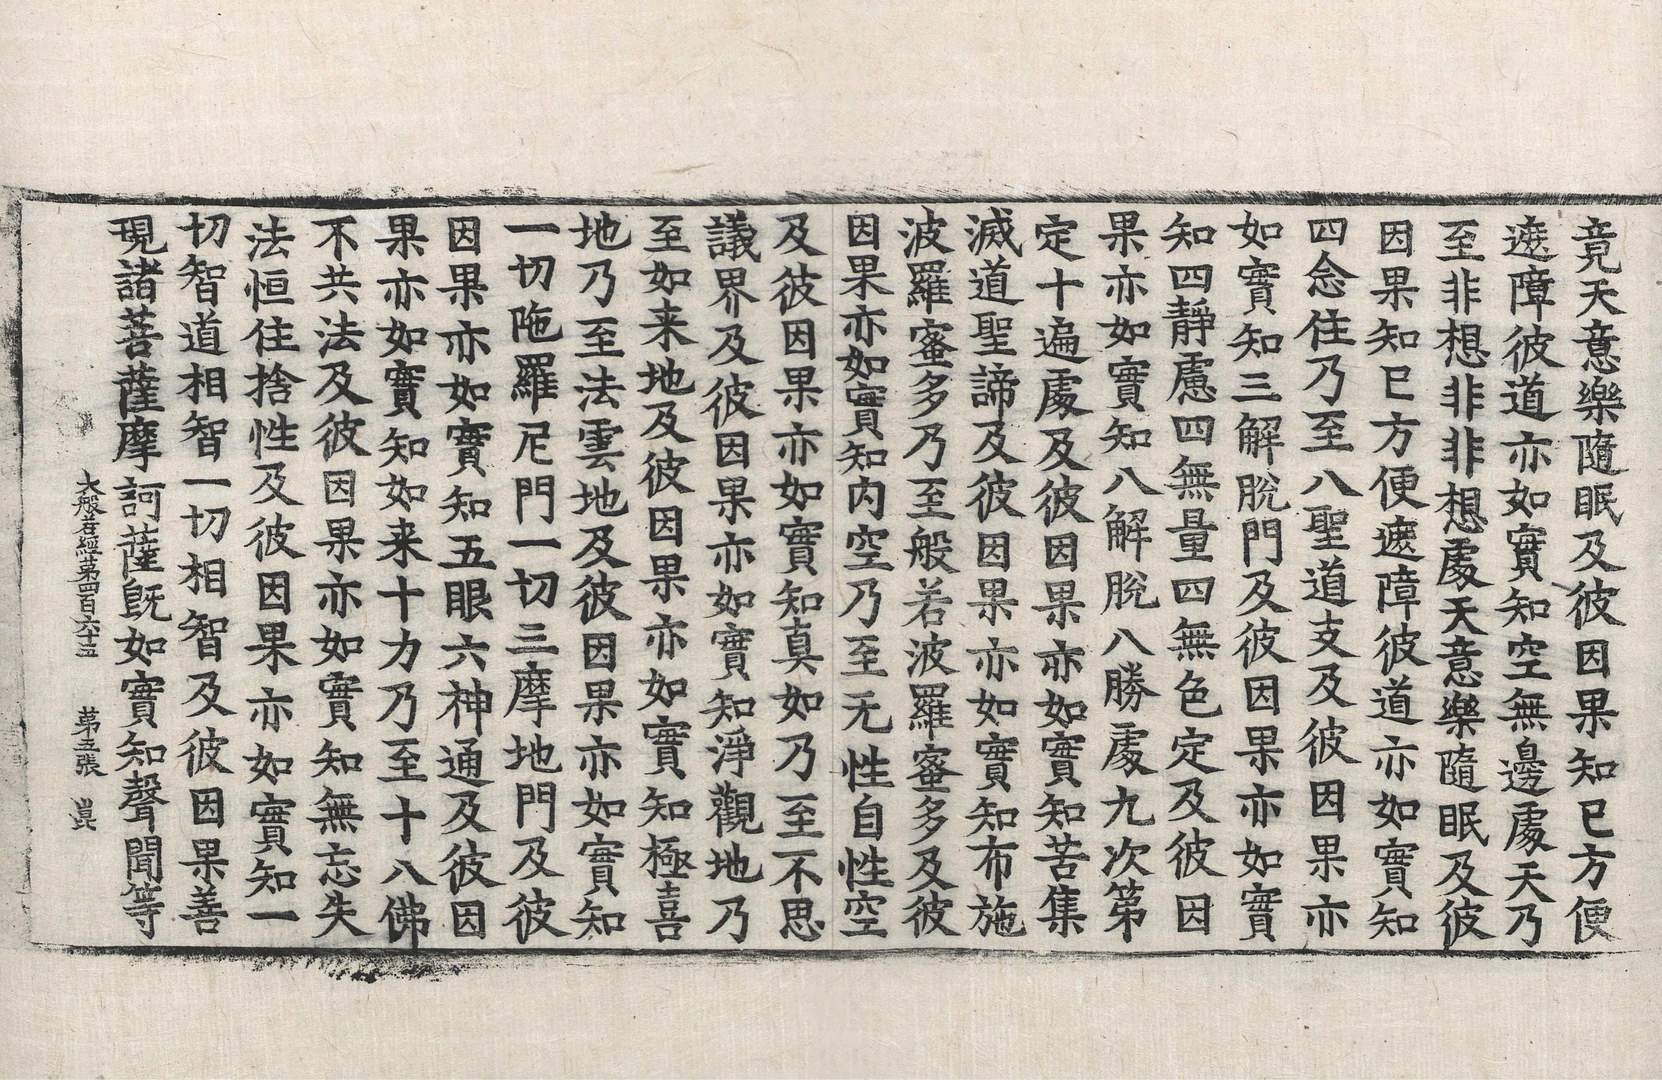 竟天意樂隨眠及彼因果知已方便
遮障彼道亦如實知空無邊處天乃
至非想非非想處天意樂隨眠及彼
因果知已方便遮障彼道亦如實知
四念住乃至八聖道支及彼因果亦
如實知三解脫門及彼因果亦如實
知四靜慮四無量四無色定及彼因
果亦如實知八解脫八勝處九次第
定十遍處及彼因果亦如實知苦集
滅道聖諦及彼因果亦如實知布施
波羅蜜多乃至般若波羅蜜多及彼
因果亦如實知內空乃至无性自性空
及彼因果亦如實知真如乃至不思
議界及彼因果亦如實知淨觀地乃
至如来地及彼因果亦如實知極喜
地乃至法雲地及彼因果亦如實知
一切陁羅尼門一切三摩地門及彼
因果亦如實知五眼六神通及彼因
果亦如實知如来十力乃至十八佛
不共法及彼因果亦如實知無忘失
法恒住捨性及彼因果亦如實知一
切智道相智一切相智及彼因果善
現諸菩薩摩訶薩旣如實知聲聞等
大般若經第四百六十五 第五張 崑